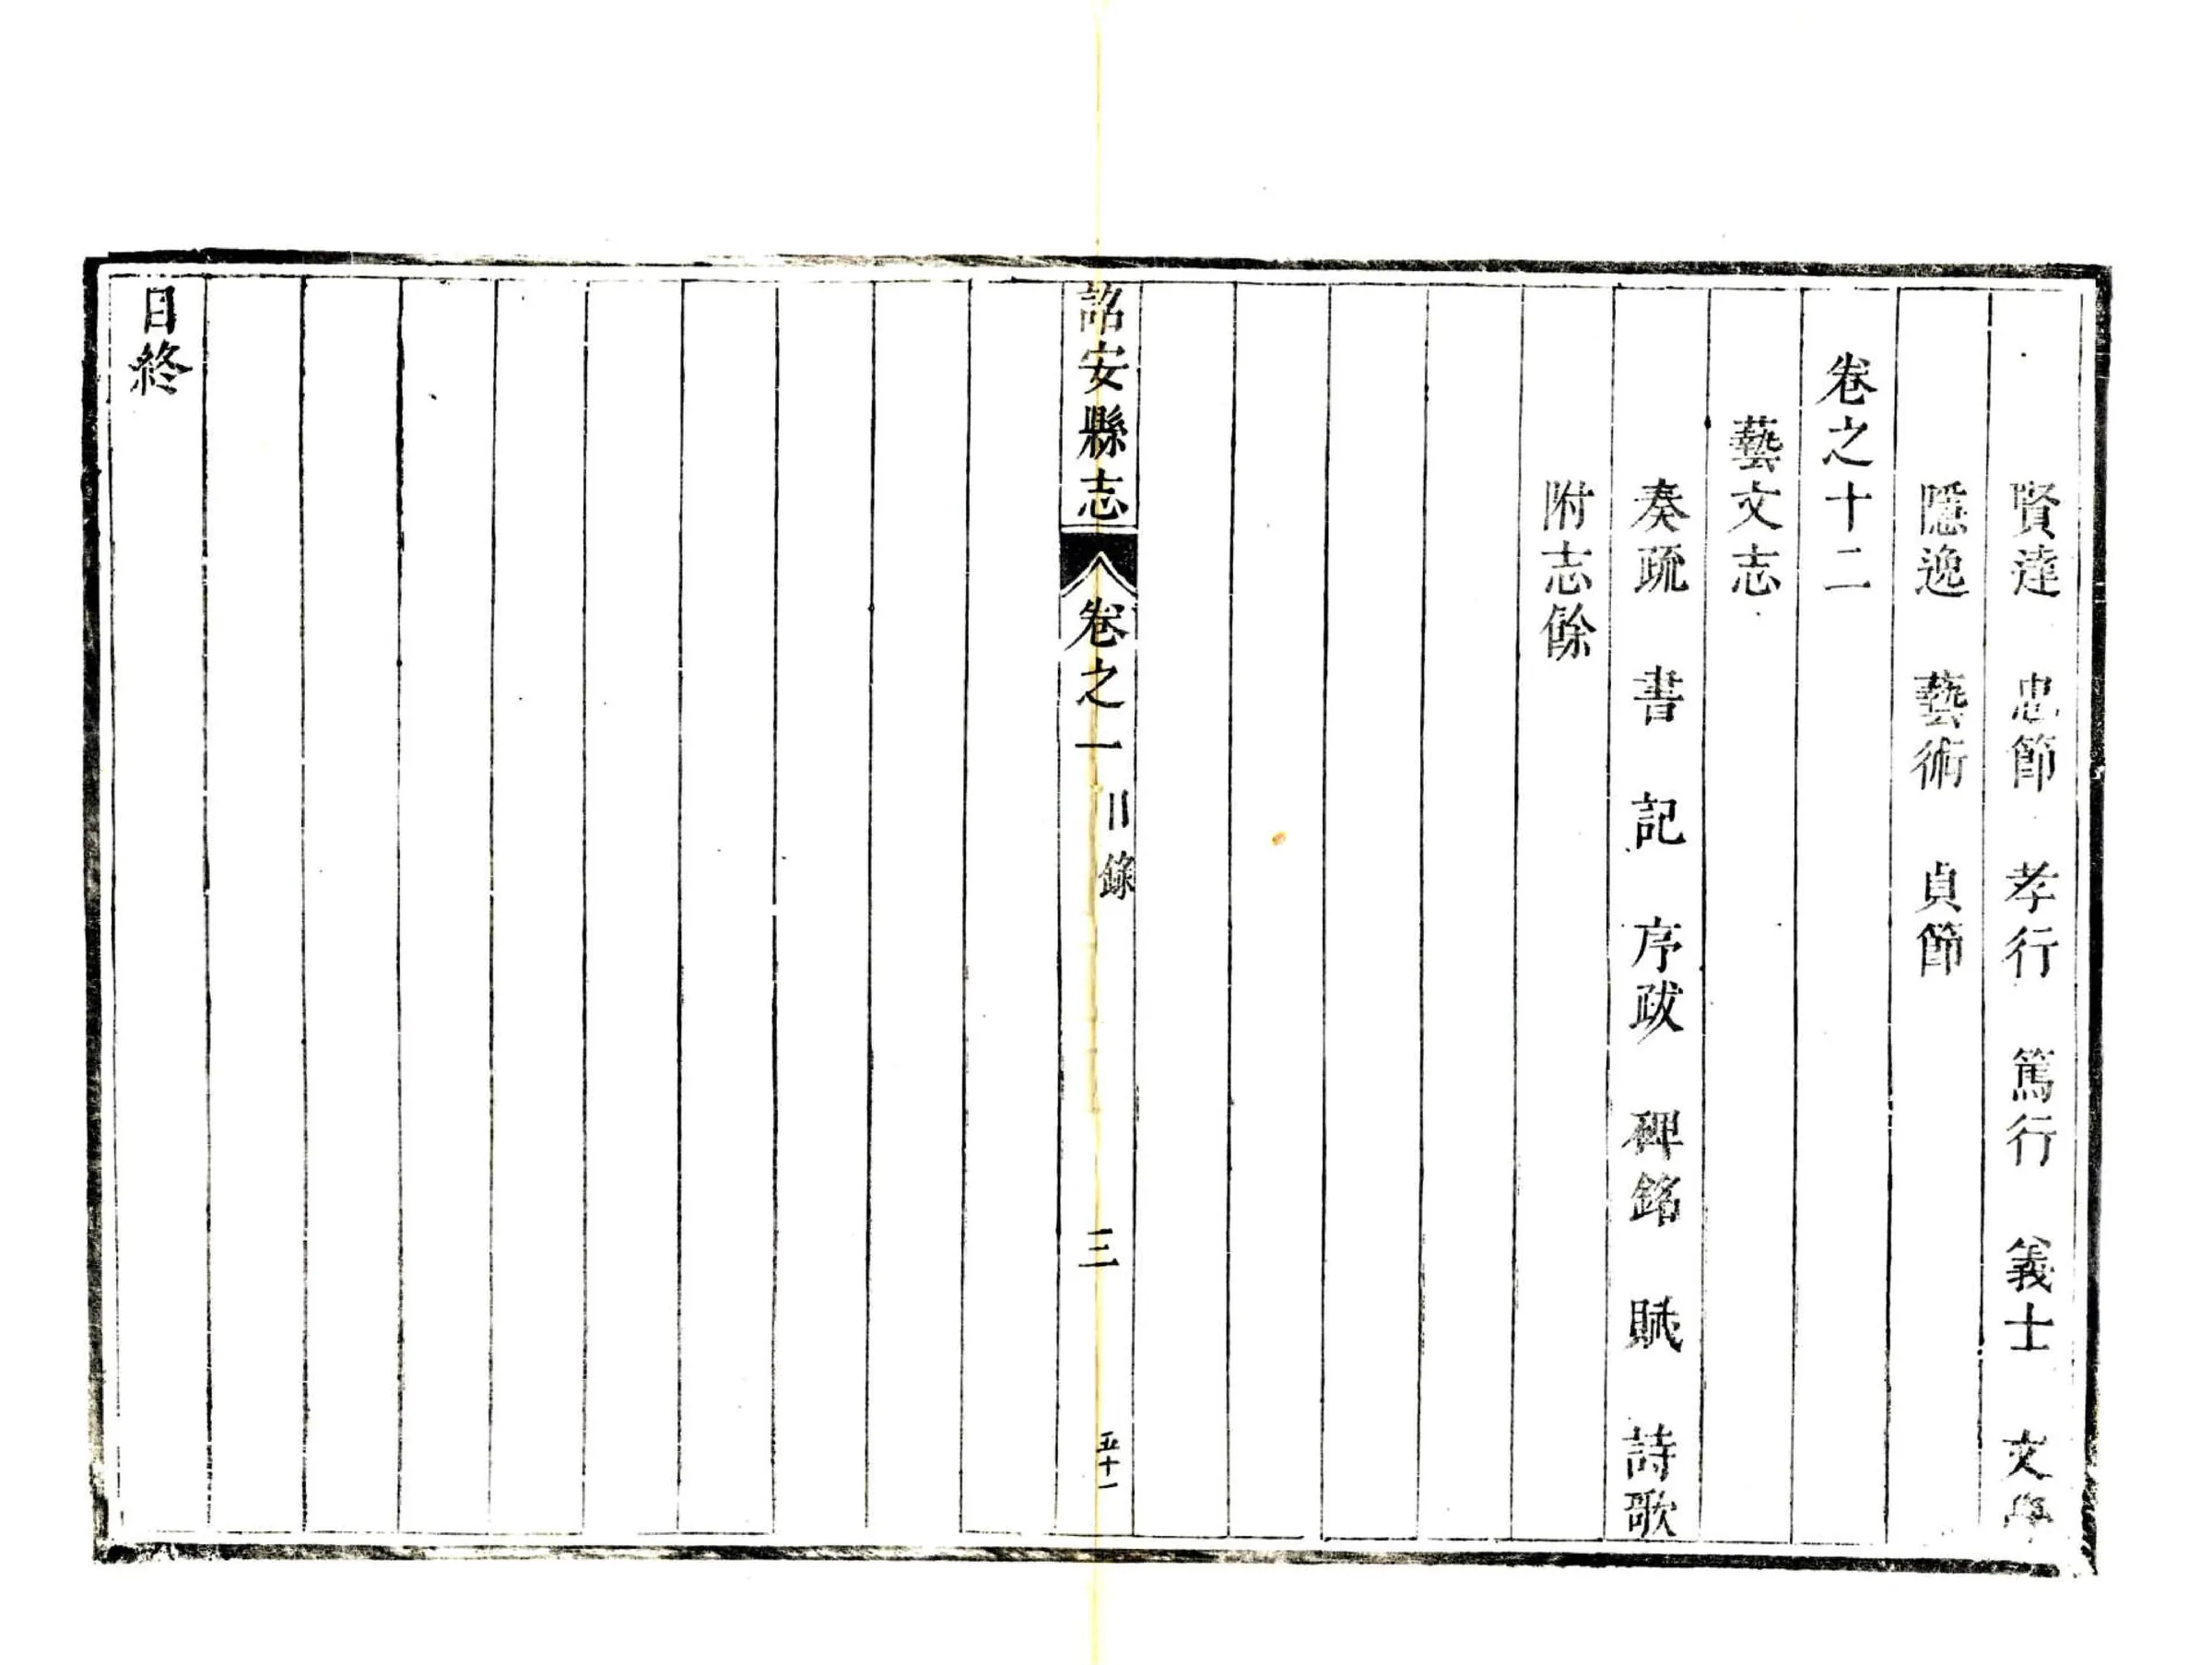 賢達　忠節　孝行　篤行　義士　文學
隱逸　藝術　貞節
卷之十二
藝文志
奏疏　書　記　序跋　碑銘　賦　詩歌
附志餘
詔安縣志　卷之一　目錄　三　五十一
目終